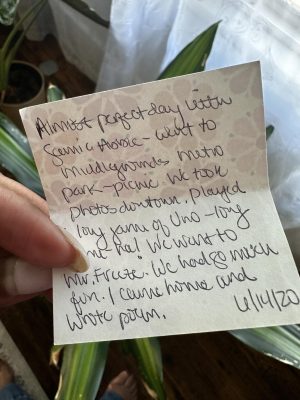 Almost perfect day with
- went to
metro
park - picnic. We took
photos downtown. Played
long game of Uno - long
game ha! We went to
Mr. Freeze. We had so much
fun. I came home and
wrote poem. 6/14/20